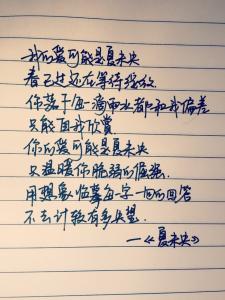 我的爱可能是夏未央
春已过还在等待绽放
你落下每一滴雨水都和我偏差
只能自我欣赏
你的爱可能是夏未央
只温暖你脆弱的倔强
用想象临摹每一字一句的回答
不去计较有多失望
—《夏未央》